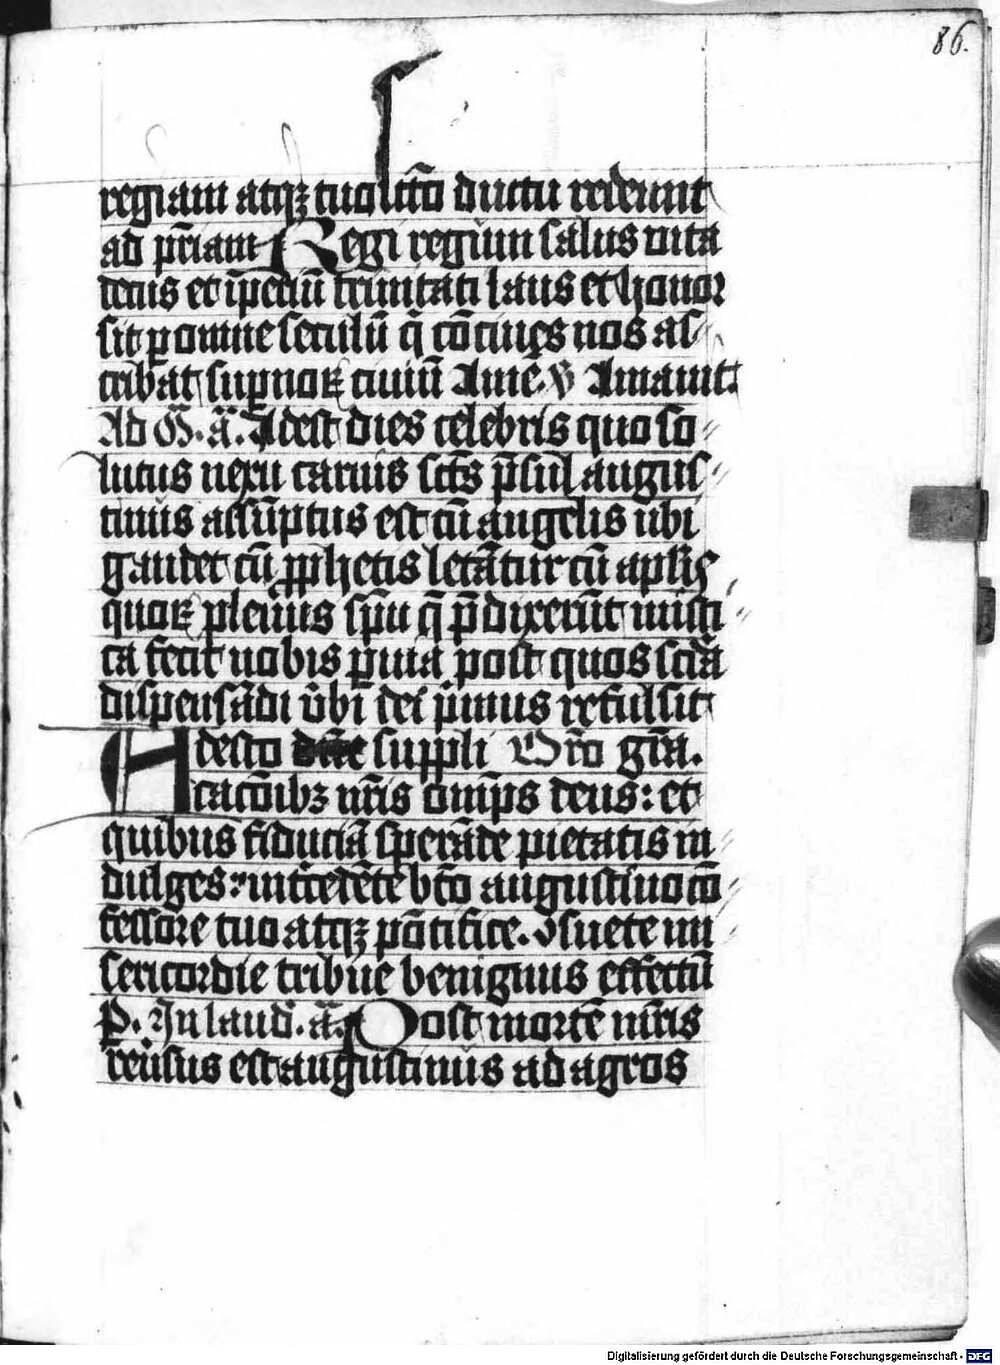 86.
regiam atqꝫ tuo sc̄to ductu redeunt
ad pr̄iam Regi regum salus vita
decus et īperiū trinitati laus et honor
sit ꝑ omne seculū q̄ cōciues nos as
cribat supnoꝝ ciuiū Amē. ℣ Amauit.
Ad M̄. ā. Adest dies celebris quo so
lutus nexu carnis sct̄s p̄sul augus
tinus assūptus est cū angelis ubi
gaudet cū ꝓphetis letātur cū aplis
quoꝝ plenus sp̄u q̄ p̄dixerūt misti
ca fecit nobis ꝑuia post quos sc̄da
dispensādi v̄bi dei pͥmus refulsit
Adesto dn̄e suppli Or̄o gr̄a.
cacōibꝫ nr̄is omīps deus: et
quibus fiduciā sperāde pietatis in
dulges: int̄cedēte bt̄o augustino cō
fessore tuo atqꝫ pōtifice. ꝯsuete mi
sericordie tribue benignus effectū
P. In laud̄. ā. Post mortē mr̄is
reūsus est augustinus ad agros
Digitalisierung gefördert durch die Deutsche Forschungsgemeinschaft - DFG